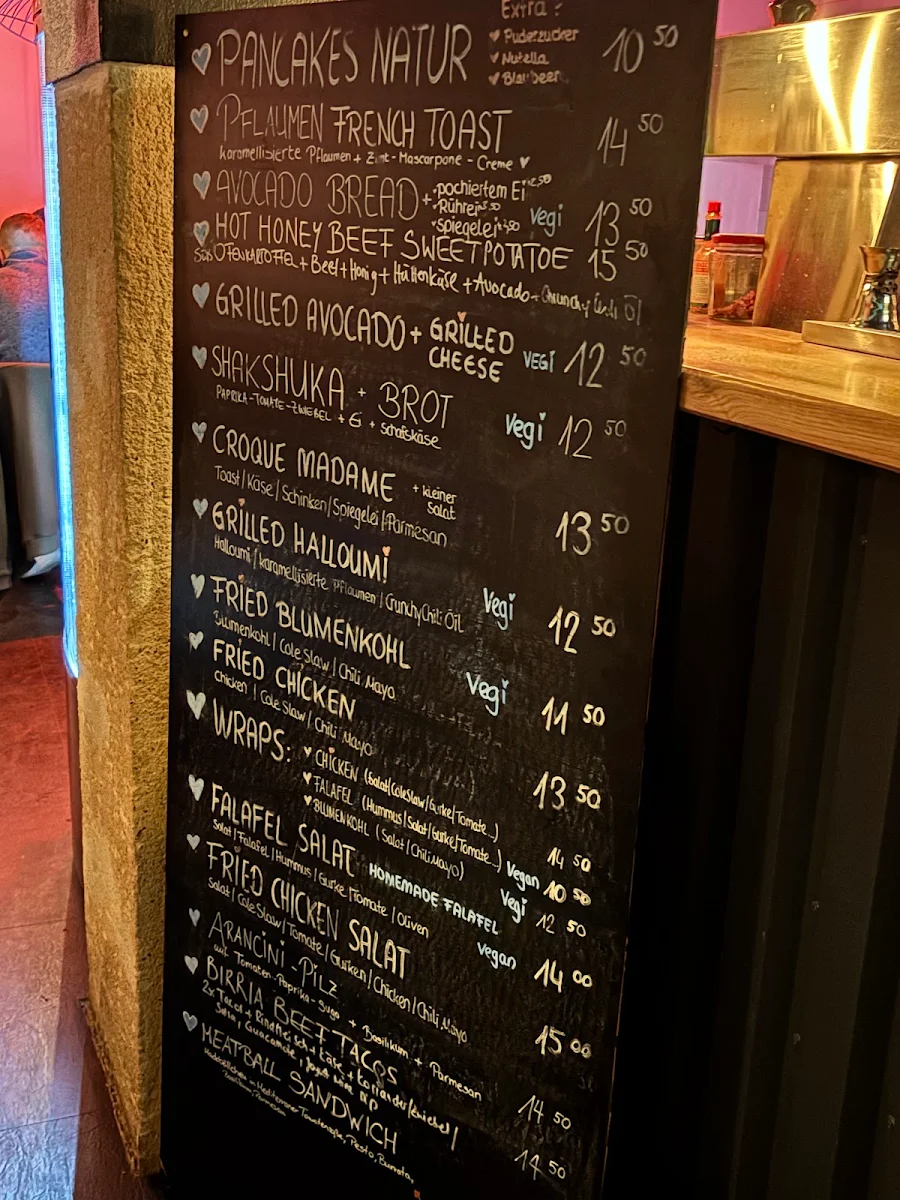 Extra:
PANCAKES NATUR ♥ Puderzucker 10 50
♥ Nutella
♥ Blaubeer
PFLAUMEN FRENCH TOAST 14 50
karamellisierte Pflaumen + Zimt - Mascarpone - Creme ♥
AVOCADO BREAD + pochiertem Ei Vegi 13 50
Rührei
Spiegelei
HOT HONEY BEEF SWEETPOTATOE 15 50
SÜßOFENKARTOFFEL + Beef + Honig + Hüttenkäse + Avocado + Crunchy Chili Öl
GRILLED AVOCADO + GRILLED CHEESE VEGI 12 50
SHAKSHUKA + BROT Vegi 12 50
PAPRIKA-TOMATE-ZWIEBEL + Ei + Schafskäse
CROQUE MADAME + kleiner Salat 13 50
Toast/Käse/Schinken/Spiegelei/Parmesan
GRILLED HALLOUMi Vegi 12 50
Halloumi/karamellisierte Pflaumen/CrunchyChili ÖiL
FRiED BLUMENKOHL Vegi 11 50
Blumenkohl/Cole Slaw/Chili Mayo
FRiED CHiCKEN 13 50
chicken/Cole Slaw/Chili Mayo
WRAPS: ♥ CHiCKEN (Salat/ColeSlaw/Gurke/Tomate...) 14 50
♥ FALAFEL (Hummus/Salat/Gurke/Tomate...) Vegan 10 50
♥ BLUMENKOHL (Salat/ChiliMayo) Vegi 12 50
FALAFEL SALAT HOMEMADE FALAFEL vegan 14 00
Salat/Falafel/Hummus/Gurke/Tomate/Oliven
FRiED CHiCKEN SALAT 15 00
Salat/Cole Slaw/Tomate/Gurken/Chicken/Chili Mayo
ARANCiNi - PiLZ 14 50
auf Tomaten-Paprika-Sugo + Basilikum + Parmesan
BIRRIA BEEF TACOS 14 50
2x Tacos + Rindfleisch + Käse + Koriander/Zwiebel/
Guacamole
MEATBALL SANDWICH
Pesto, Burrata,